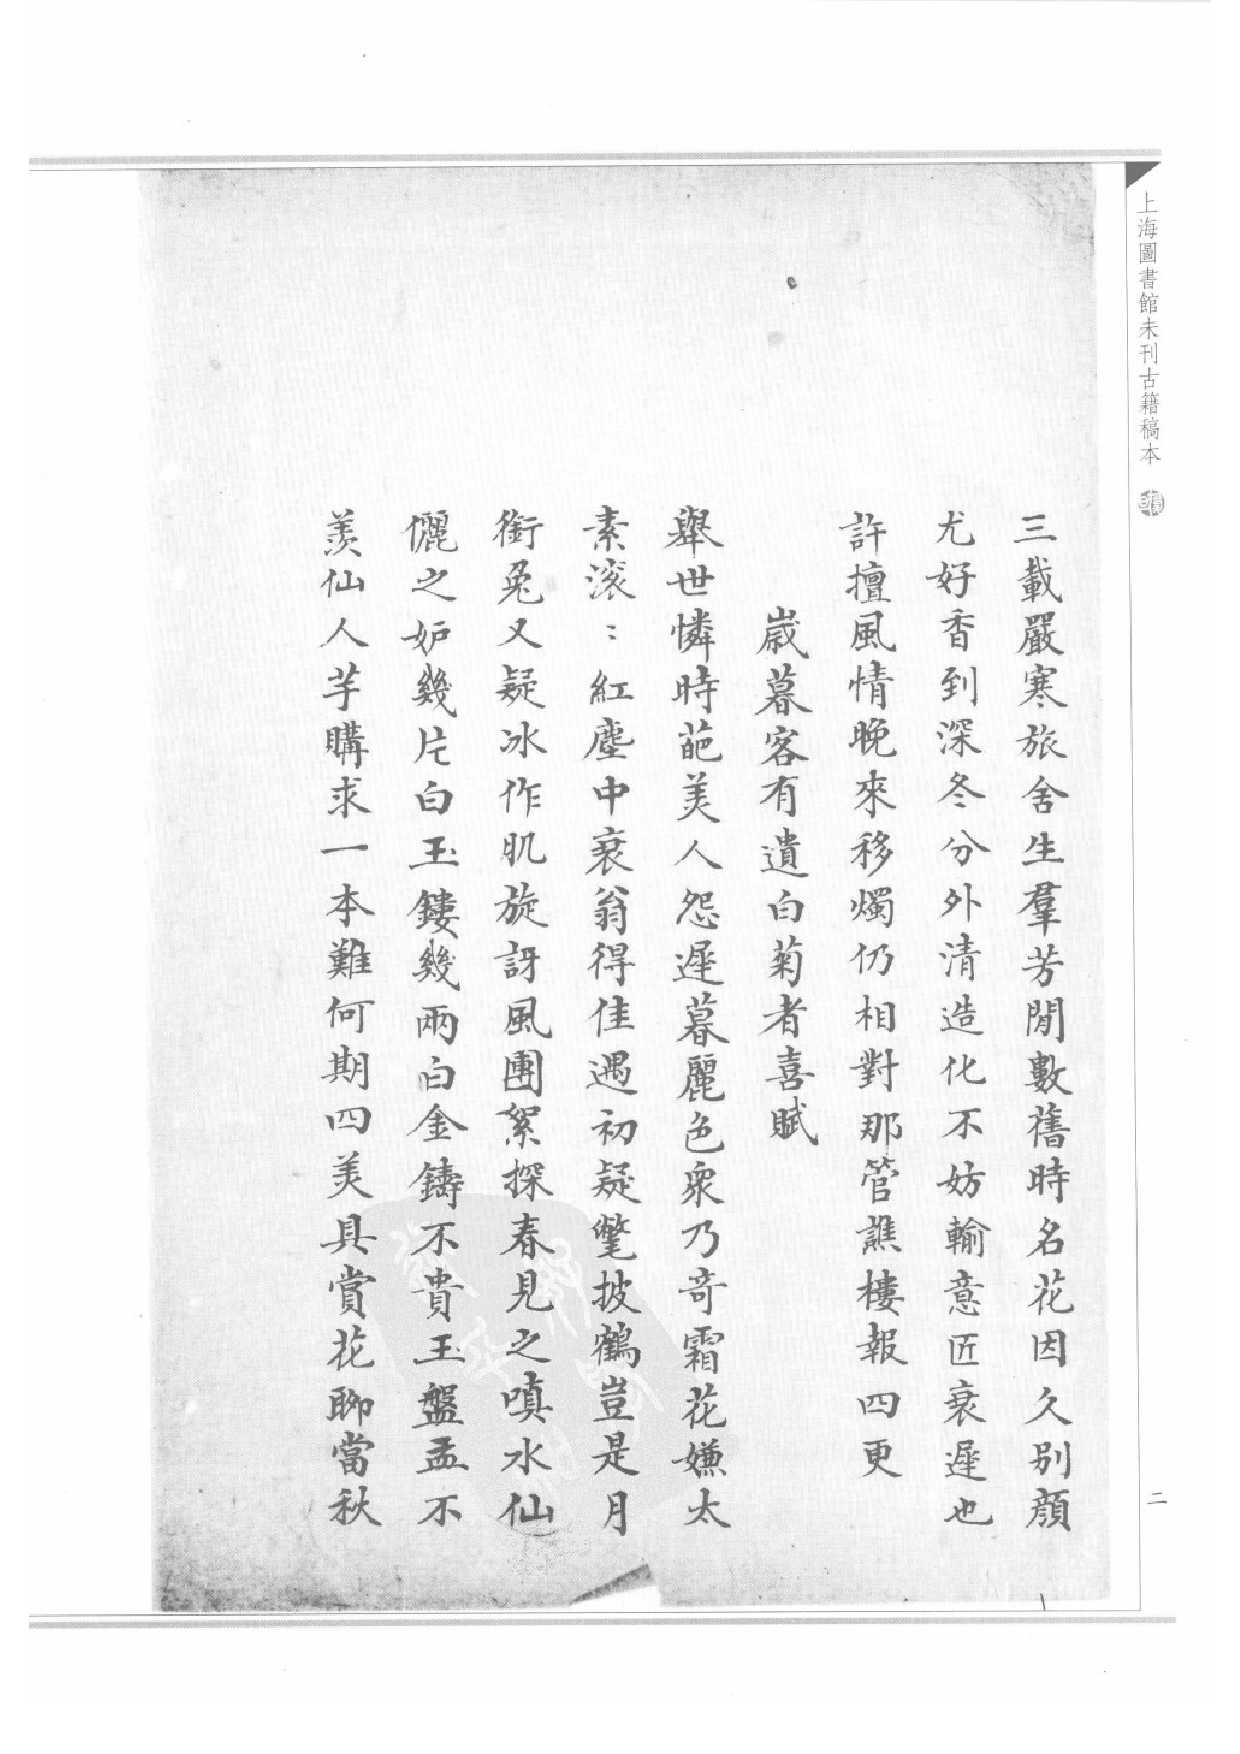 上海圖書館未刊古籍稿本
三載嚴寒旅舍生羣芳閒數舊時名花因久別顏
尤好香到深冬分外清造化不妨輸意匠衰遲也
許擅風情晚來移燭仍相對那管譙樓報四更
歲暮客有遺白菊者喜賦
舉世憐時葩美人怨遲暮麗色衆乃奇霜花嫌太
素滚〻紅塵中衰翁得佳遇初疑氅披鶴豈是月
銜兔又疑冰作肌旋訝風團絮探春見之嗔水仙
儷之妒幾片白玉鏤幾兩白金鑄不貴玉盤盂不
羨仙人芋購求一本難何期四美具賞花聊當秋
二